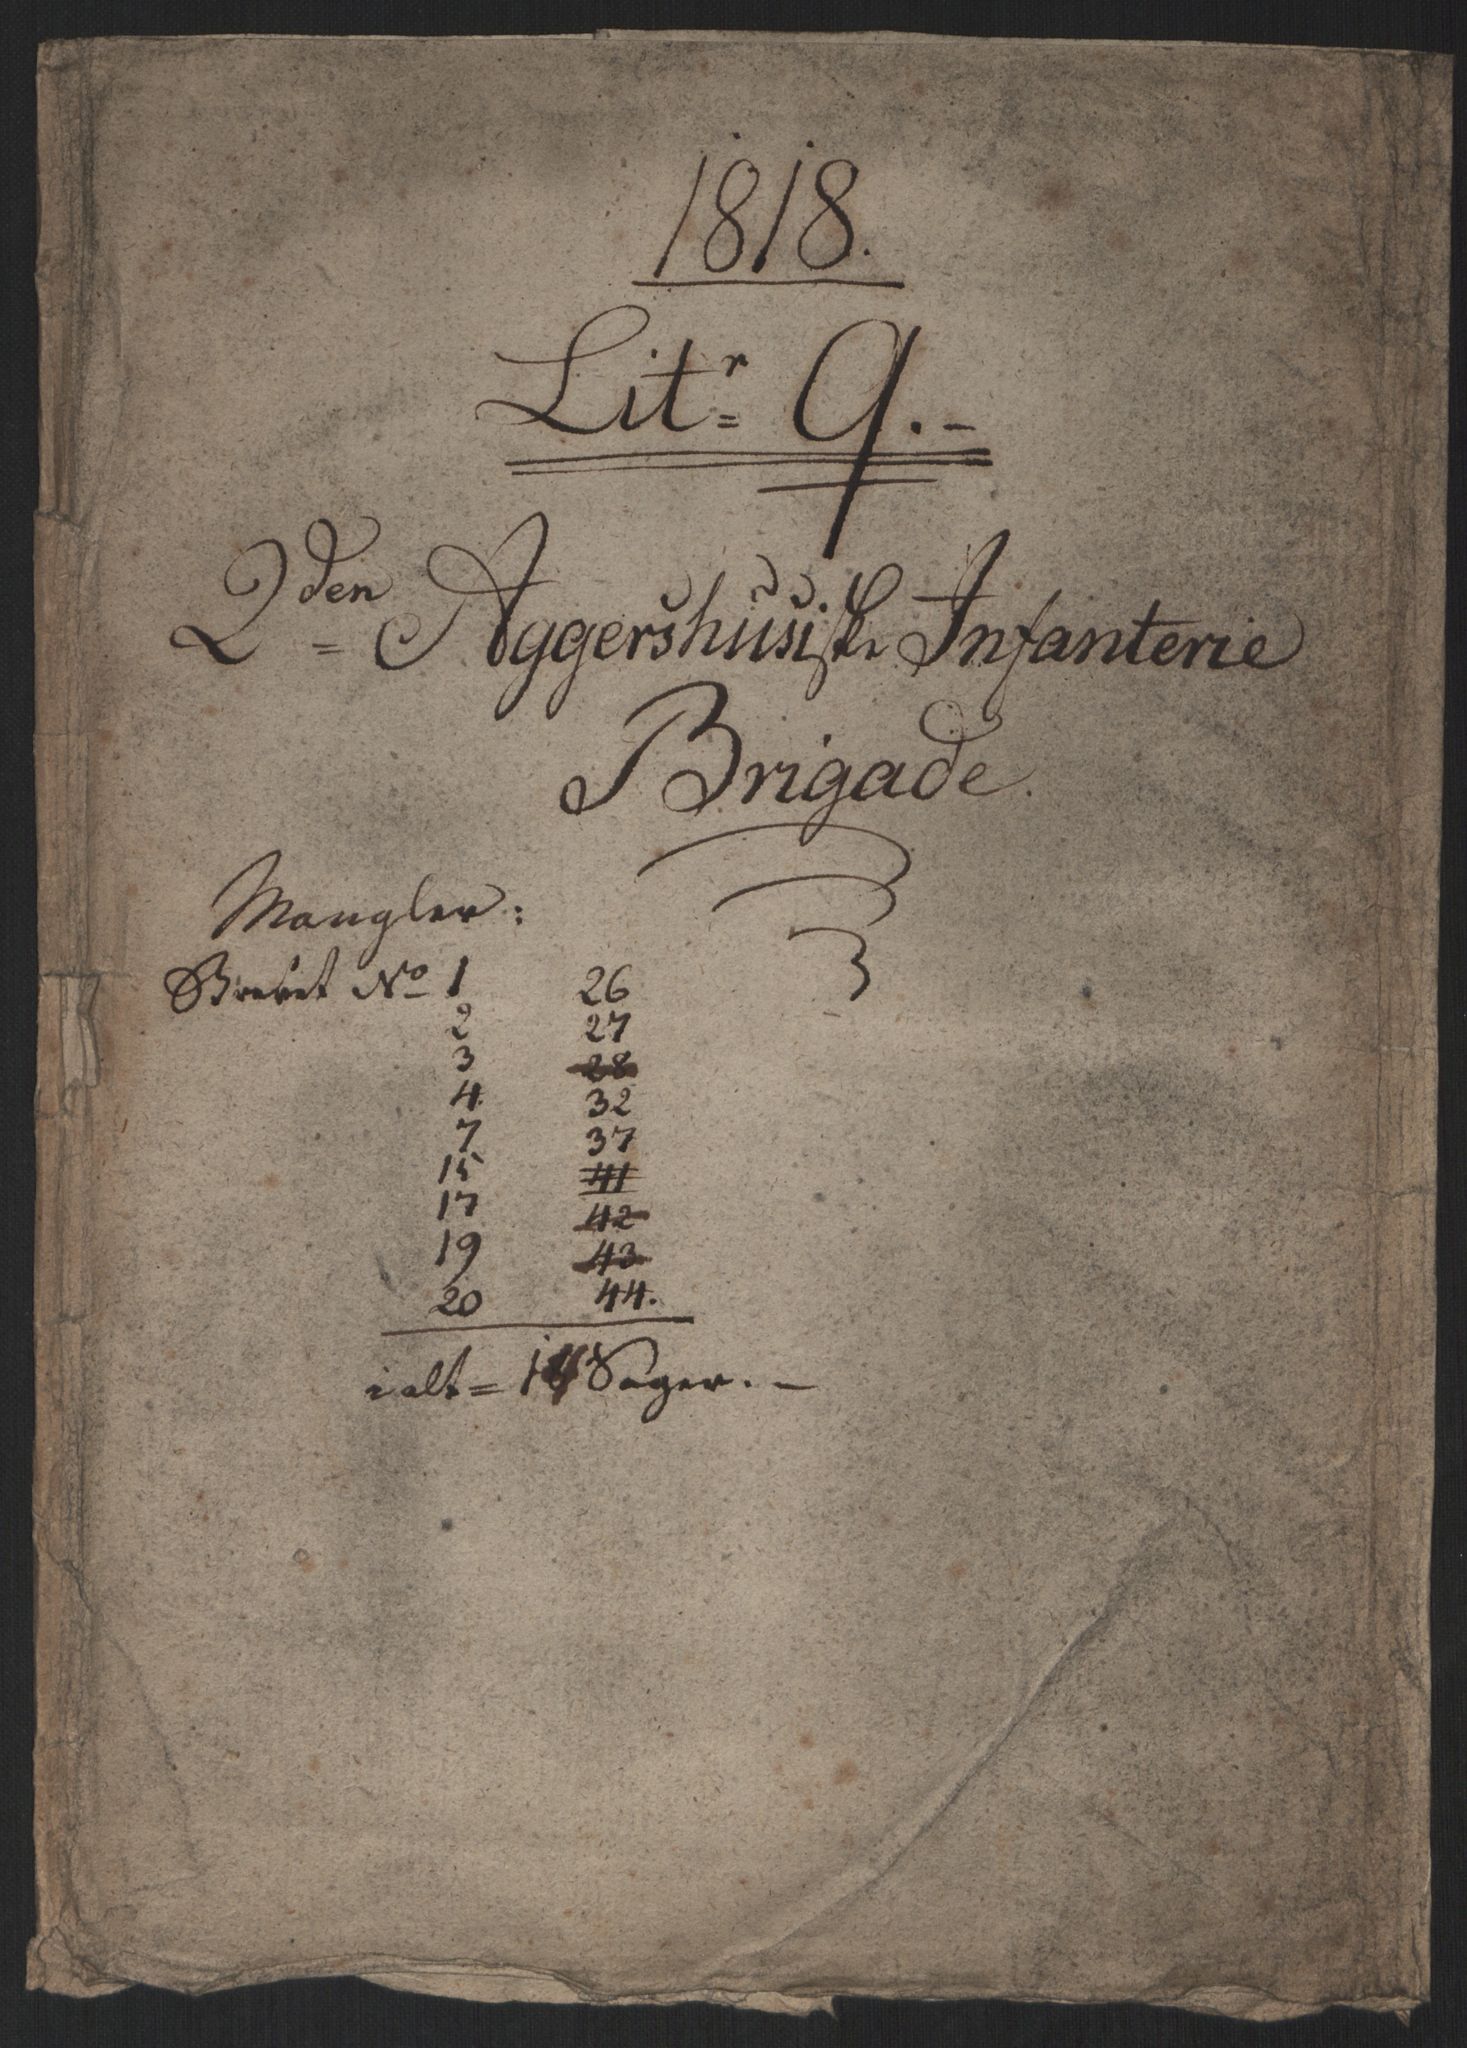 1818.
Litr= Q.-
2den= Aggershusiske Infanterie
Brigade.
Mangler:
Brevet No 1 26
2 27
3 28
4 32
7 37
15 41
17 42
19 43
20 44.
i alt= Sager.-